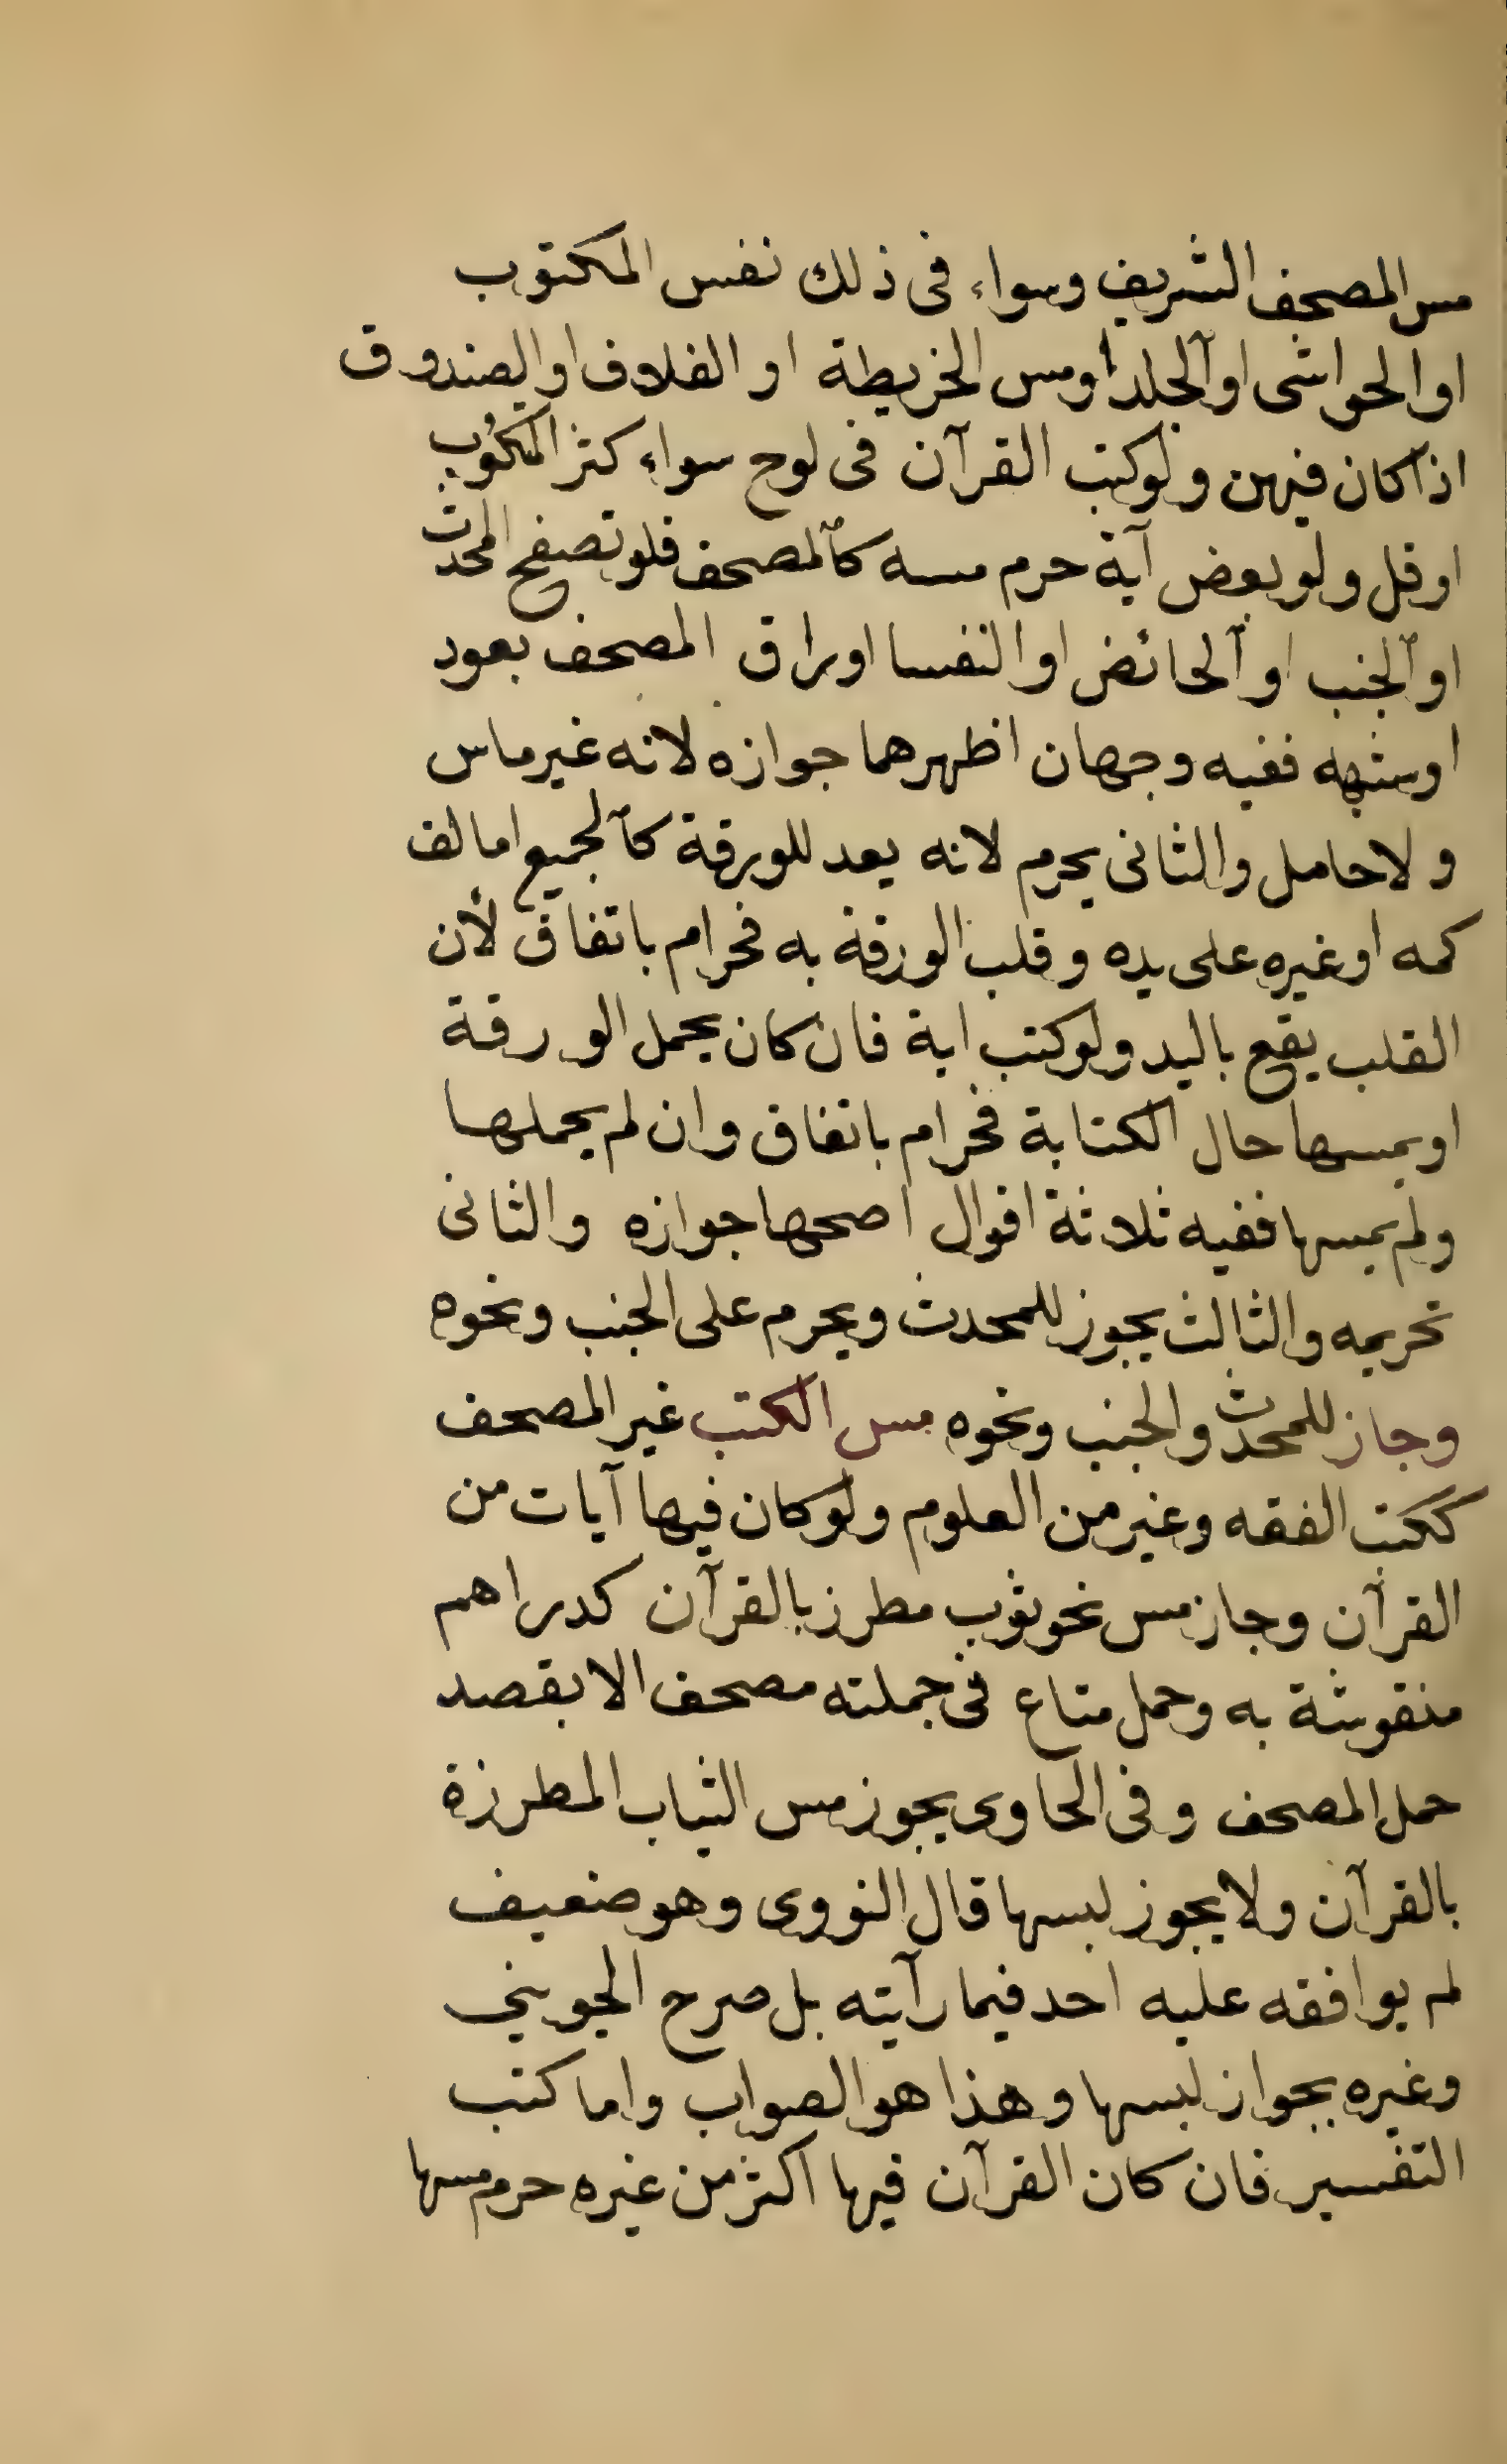 مس المصحف الشريف وسواء فى ذلك نفس المكتوب
او الحواشى او الجلد او مس الخريطة او الغلاف او الصندوق
اذا كان فيهن ولو كتب القرآن فى لوح سواء كثر المكتوب
او قل ولو بعض آية حرم مسه كالمصحف فلو تصفح المحدث
او الجنب او الحائض او النفسا اوراق المصحف بعود
او شبهه ففيه وجهان اظهرهما جوازه لانه غير ماس
ولا حامل والثانى يحرم لانه يعد للورقة كالجميع اما لف
كمه او غيره على يده وقلب الورقة به فحرام باتفاق لأن
القلب يقع باليد ولو كتب اية فان كان يحمل الورقة
او يمسها حال الكتابة فحرام باتفاق وان لم يحملها
ولم يمسها ففيه ثلاثة اقوال اصحها جوازه والثانى
تحريمه والثالث يجوز للمحدث ويحرم على الجنب ونحوه
وجاز للمحدث والجنب ونحوه مس الكتب غير المصحف
ككتب الفقه وغير من العلوم ولو كان فيها آيات من
القرآن وجاز مس نحو ثوب مطرز بالقرآن كدراهم
منقوشة به وحمل متاع فى جملته مصحف الا بقصد
حمل المصحف وفى الحاوى يجوز مس الثياب المطرزة
بالقرآن ولا يجوز لبسها قال النووى وهو ضعيف
لم يوافقه عليه احد فيما رآيته بل صرح الجوينى
وغيره بجواز لبسها وهذا هو الصواب واما كتب
التفسير فان كان القرآن فيها اكثر من غيره حرم مسها